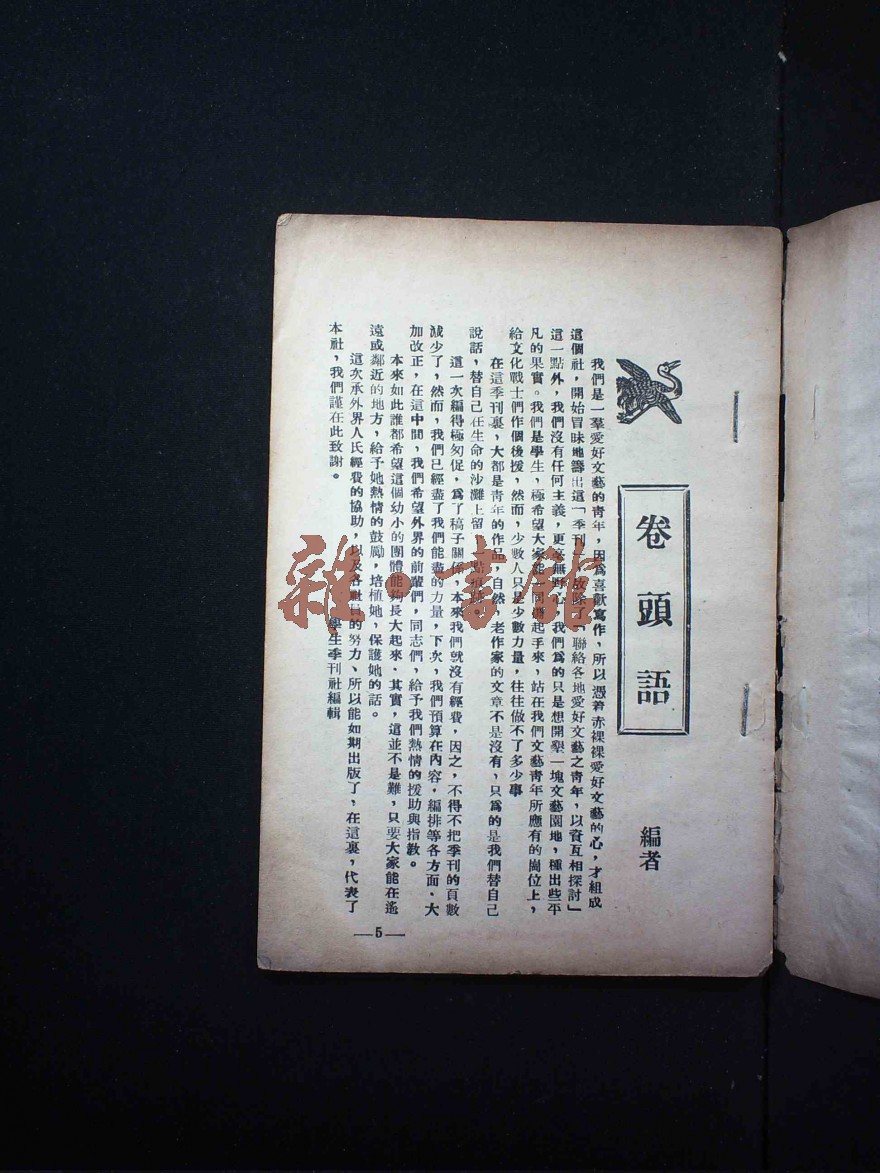 卷頭語
編者
我們是一羣愛好文藝的青年，因爲喜歡寫作，所以憑着赤裸裸愛好文藝的心，才組成
這個社，開始冒昧地籌出這「季刊」故除了「聯絡各地愛好文藝之青年，以資互相探討」
這一點外，我們沒有任何主義，更毫無野心，我們爲的只是想開墾一塊文藝園地，種出些平
凡的果實。我們是學生，極希望大家能一同攜起手來，站在我們文藝青年所應有的崗位上，
給文化戰士們作個後援，然而，少數人只是少數力量，往往做不了多少事
在這季刊裏，大都是青年的作品，自然，老作家的文章不是沒有，只爲的是我們替自己
說話，替自己在生命的沙灘上留一點痕跡。
這一次編得極匆促，爲了稿子關係，本來我們就沒有經費，因之，不得不把季刊的頁數
減少了，然而，我們已經盡了我們能盡的力量，下次，我們預算在內容，編排等各方面，大
加改正，在這中間，我們希望外界的前輩們，同志們，給予我們熱情的援助與指教。
本來如此誰都希望這個幼小的團體能夠長大起來，其實，這並不是難，只要大家能在遙
遠或鄰近的地方，給予她熱情的鼓勵，培植她，保護她的話。
這次承外界人氏經費的協助，以及各社員的努力、所以能如期出版了，在這裏，代表了
本社，我們謹在此致謝。
學生季刊社編輯
—5—
雜·書館